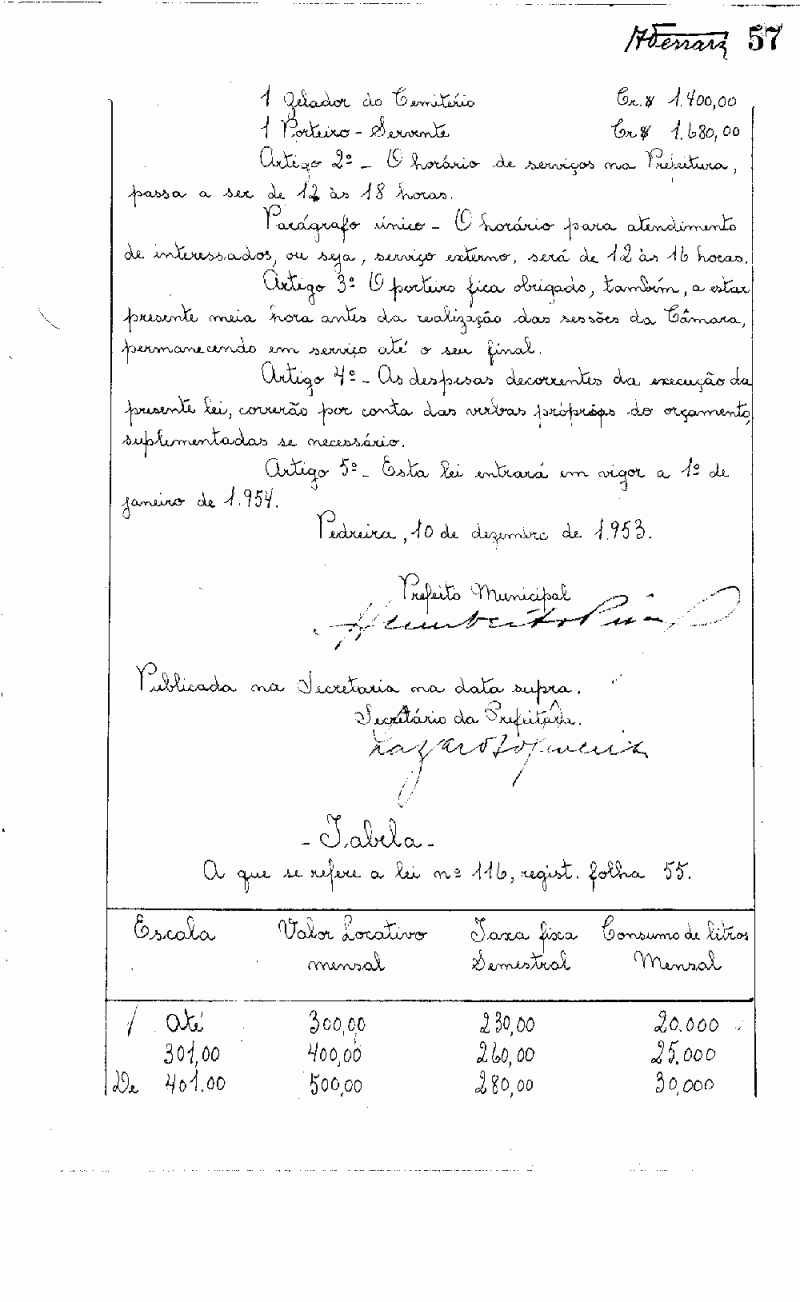 57
1 Zelador do Cemitério Cr.$ 1.400,00
1 Porteiro - Servente Cr$ 1.680,00
Artigo 2º - O horário de serviços na Prefeitura,
passa a ser de 12 às 18 horas.
Parágrafo único - O horário para atendimento
de interessados, ou seja, serviço externo, será de 12 às 16 horas.
Artigo 3º O porteiro fica obrigado, também, a estar
presente meia hora antes da realização das sessões da Câmara,
permanecendo em serviço até o seu final.
Artigo 4º - As despesas decorrentes da execução da
presente lei, correrão por conta das verbas próprias do orçamento,
suplementadas se necessário.
Artigo 5º - Esta lei entrará em vigor a 1º de
janeiro de 1.954.
Pedreira, 10 de dezembro de 1.953.
Prefeito Municipal
Publicada na Secretaria na data supra.
Secretário da Prefeitura.
- Tabela -
A que se refere a lei nº 116, regist. folha 55.
Escala Valor Locativo Taxa fixa Consumo de litros
mensal Semestral Mensal
Até 300,00 230,00 20.000
301,00 400,00 260,00 25.000
De 401.00 500,00 280,00 30,000